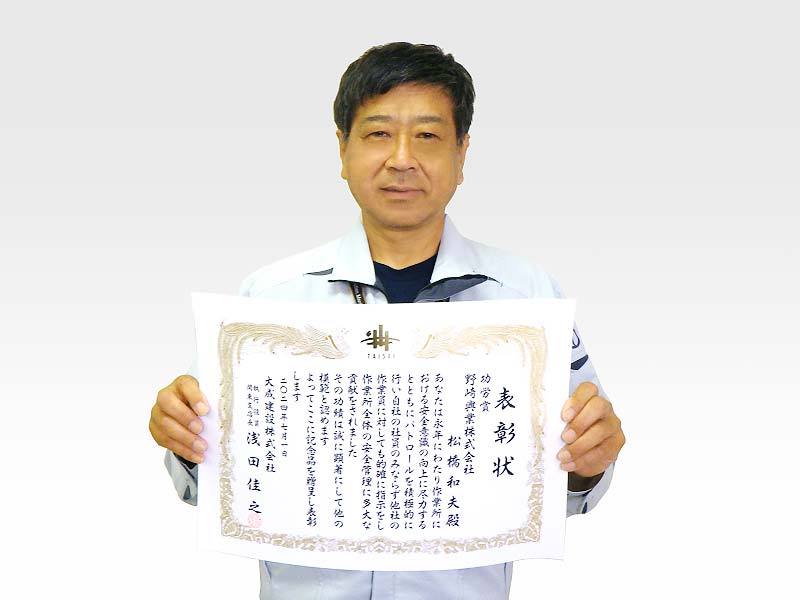 TAISEI
表彰状
功労賞
野崎興業株式会社
松橋和夫殿
あなたは永年にわたり作業所に
おける安全意識の向上に尽力する
とともにパトロールを積極的に
行い自社の社員のみならず他社の
作業員に対しても的確に指示をし
作業所全体の安全管理に多大な
貢献をされました
その功績は誠に顕著にして他の
模範と認めます
よってここに記念品を贈呈し表彰
します
二〇二四年七月一日
大成建設株式会社
執行役員
関東支店長
浅田佳之